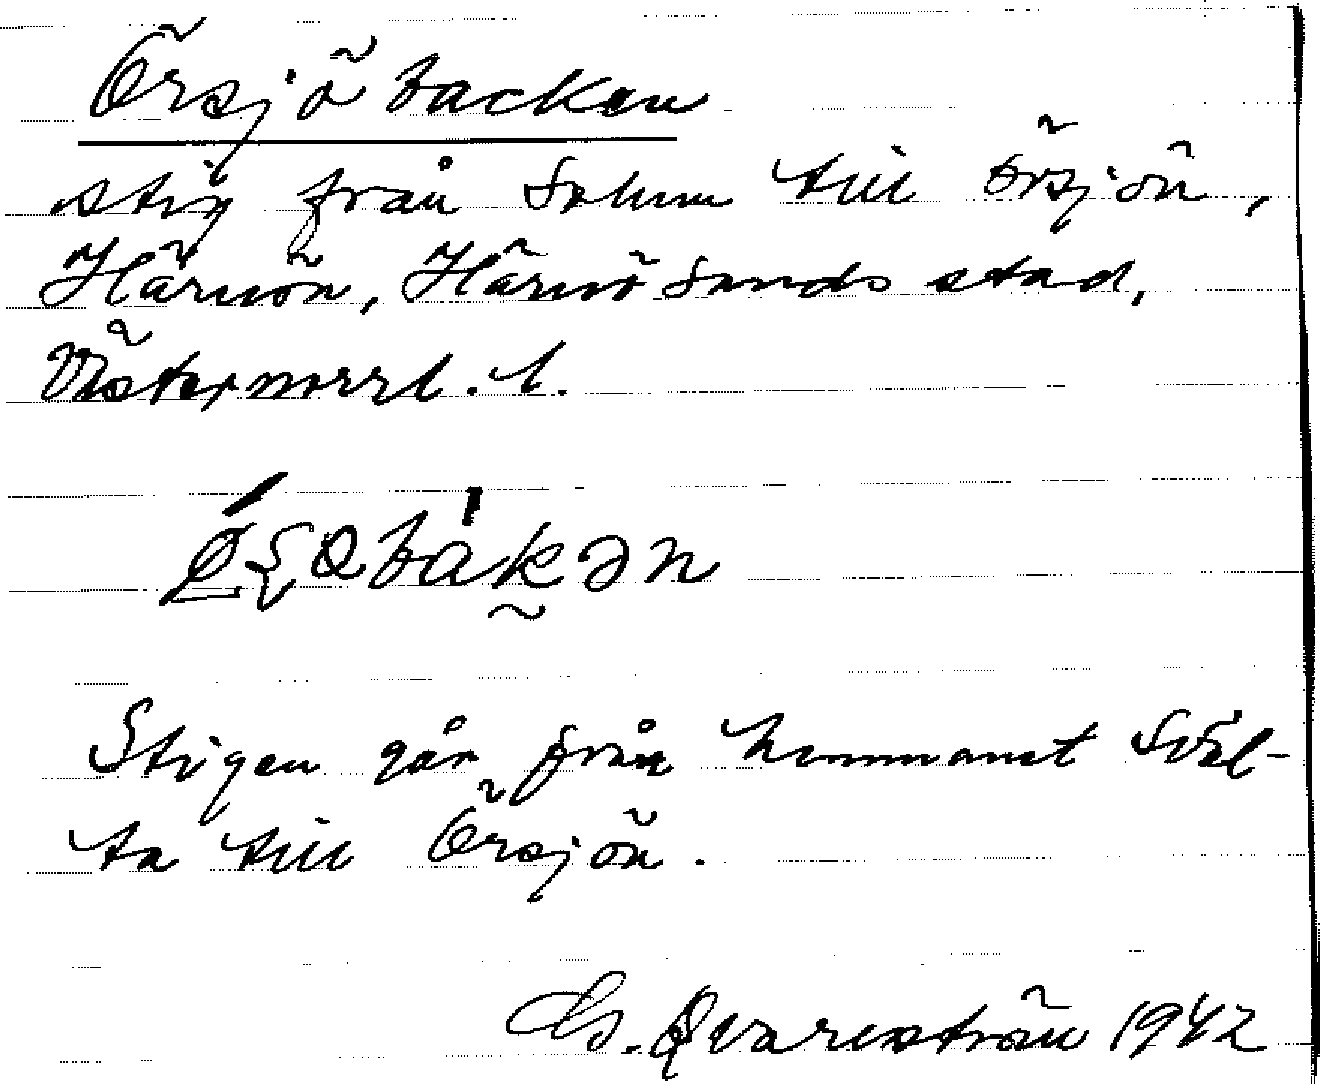 Örsjöbacken
stig från Solum till Örsjön,
Härnön, Härnösands stad,
Västernorrl. l.
Stigen går från hemmanet Sväl-
ta till Örsjön.
Qvarnström 1942